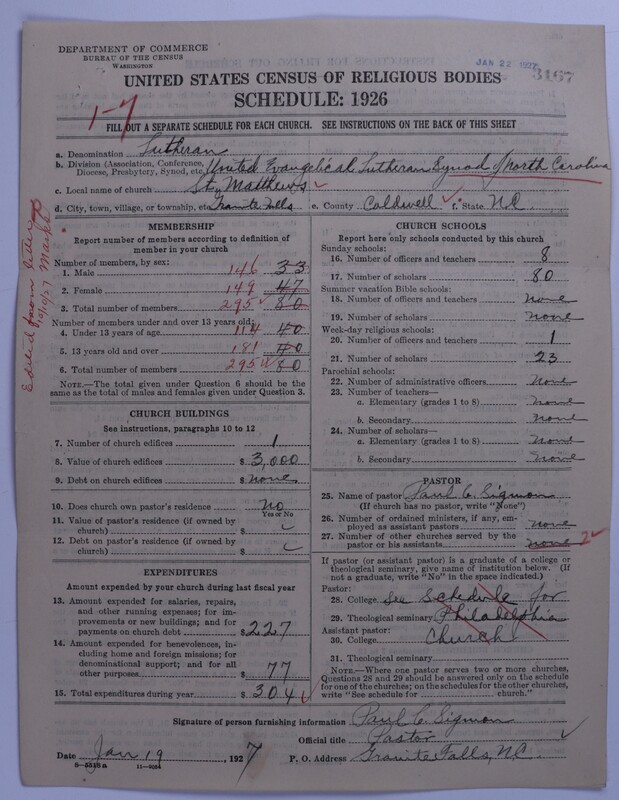 DEPARTMENT OF COMMERCE
BUREAU OF THE CENSUS
WASHINGTON
JAN 22 1927
3167
UNITED STATES CENSUS OF RELIGIOUS BODIES
SCHEDULE: 1926
1-7
FILL OUT A SEPARATE SCHEDULE FOR EACH CHURCH. SEE INSTRUCTIONS ON THE BACK OF THIS SHEET
a. Denomination Lutheran
b. Division (Association, Conference, Diocese, Presbytery, Synod, etc. United Evangelical Lutheran Synod of North Carolina
c. Local name of church St. Matthews
d. City, town, village, or township, etc Granite Falls e. County Caldwell f. State NC
MEMBERSHIP
Report number of members according to definition of member in your church
Number of members, by sex:
1. Male 146 33
2. Female 149 47
3. Total number of members 295 80
Number of members under and over 13 years old:
4. Under 13 years of age 114 40
5. 13 years old and over 181 40
6. Total number of members 295 80
NOTE.—The total given under Question 6 should be the same as the total of males and females given under Question 3.
CHURCH BUILDINGS
See instructions, paragraphs 10 to 12
7. Number of church edifices 1
8. Value of church edifices $ 3,000
9. Debt on church edifices $ none
10. Does church own pastor's residence No
Yes or No
11. Value of pastor's residence (if owned by church) $
12. Debt on pastor's residence (if owned by church) $
EXPENDITURES
Amount expended by your church during last fiscal year
13. Amount expended for salaries, repairs, and other running expenses; for improvements or new buildings; and for payments on church debt $ 227
14. Amount expended for benevolences, including home and foreign missions; for denominational support; and for all other purposes $ 77
15. Total expenditures during year $ 304
CHURCH SCHOOLS
Report here only schools conducted by this church
Sunday schools:
16. Number of officers and teachers 8
17. Number of scholars 80
Summer vacation Bible schools:
18. Number of officers and teachers none
19. Number of scholars none
Week-day religious schools:
20. Number of officers and teachers 1
21. Number of scholars 23
Parochial schools:
22. Number of administrative officers none
23. Number of teachers—
a. Elementary (grades 1 to 8) none
b. Secondary none
24. Number of scholars—
a. Elementary (grades 1 to 8) none
b. Secondary none
PASTOR
25. Name of pastor Paul C. Sigmon
(If church has no pastor, write "None")
26. Number of ordained ministers, if any, employed as assistant pastors none
27. Number of other churches served by the pastor or his assistants none 2
If pastor (or assistant pastor) is a graduate of a college or theological seminary, give name of institution below. (If not a graduate, write "No" in the space indicated.)
Pastor:
28. College See Schedule for
29. Theological seminary Philadelphia
Assistant pastor:
30. College Church
31. Theological seminary
NOTE.—Where one pastor serves two or more churches, Questions 28 and 29 should be answered only on the schedule for one of the churches; on the schedules for the other churches, write "See schedule for church."
Signature of person furnishing information Paul C. Sigmon
Official title Pastor
Date Jan 19 1927 P. O. Address Granite Falls, N.C.